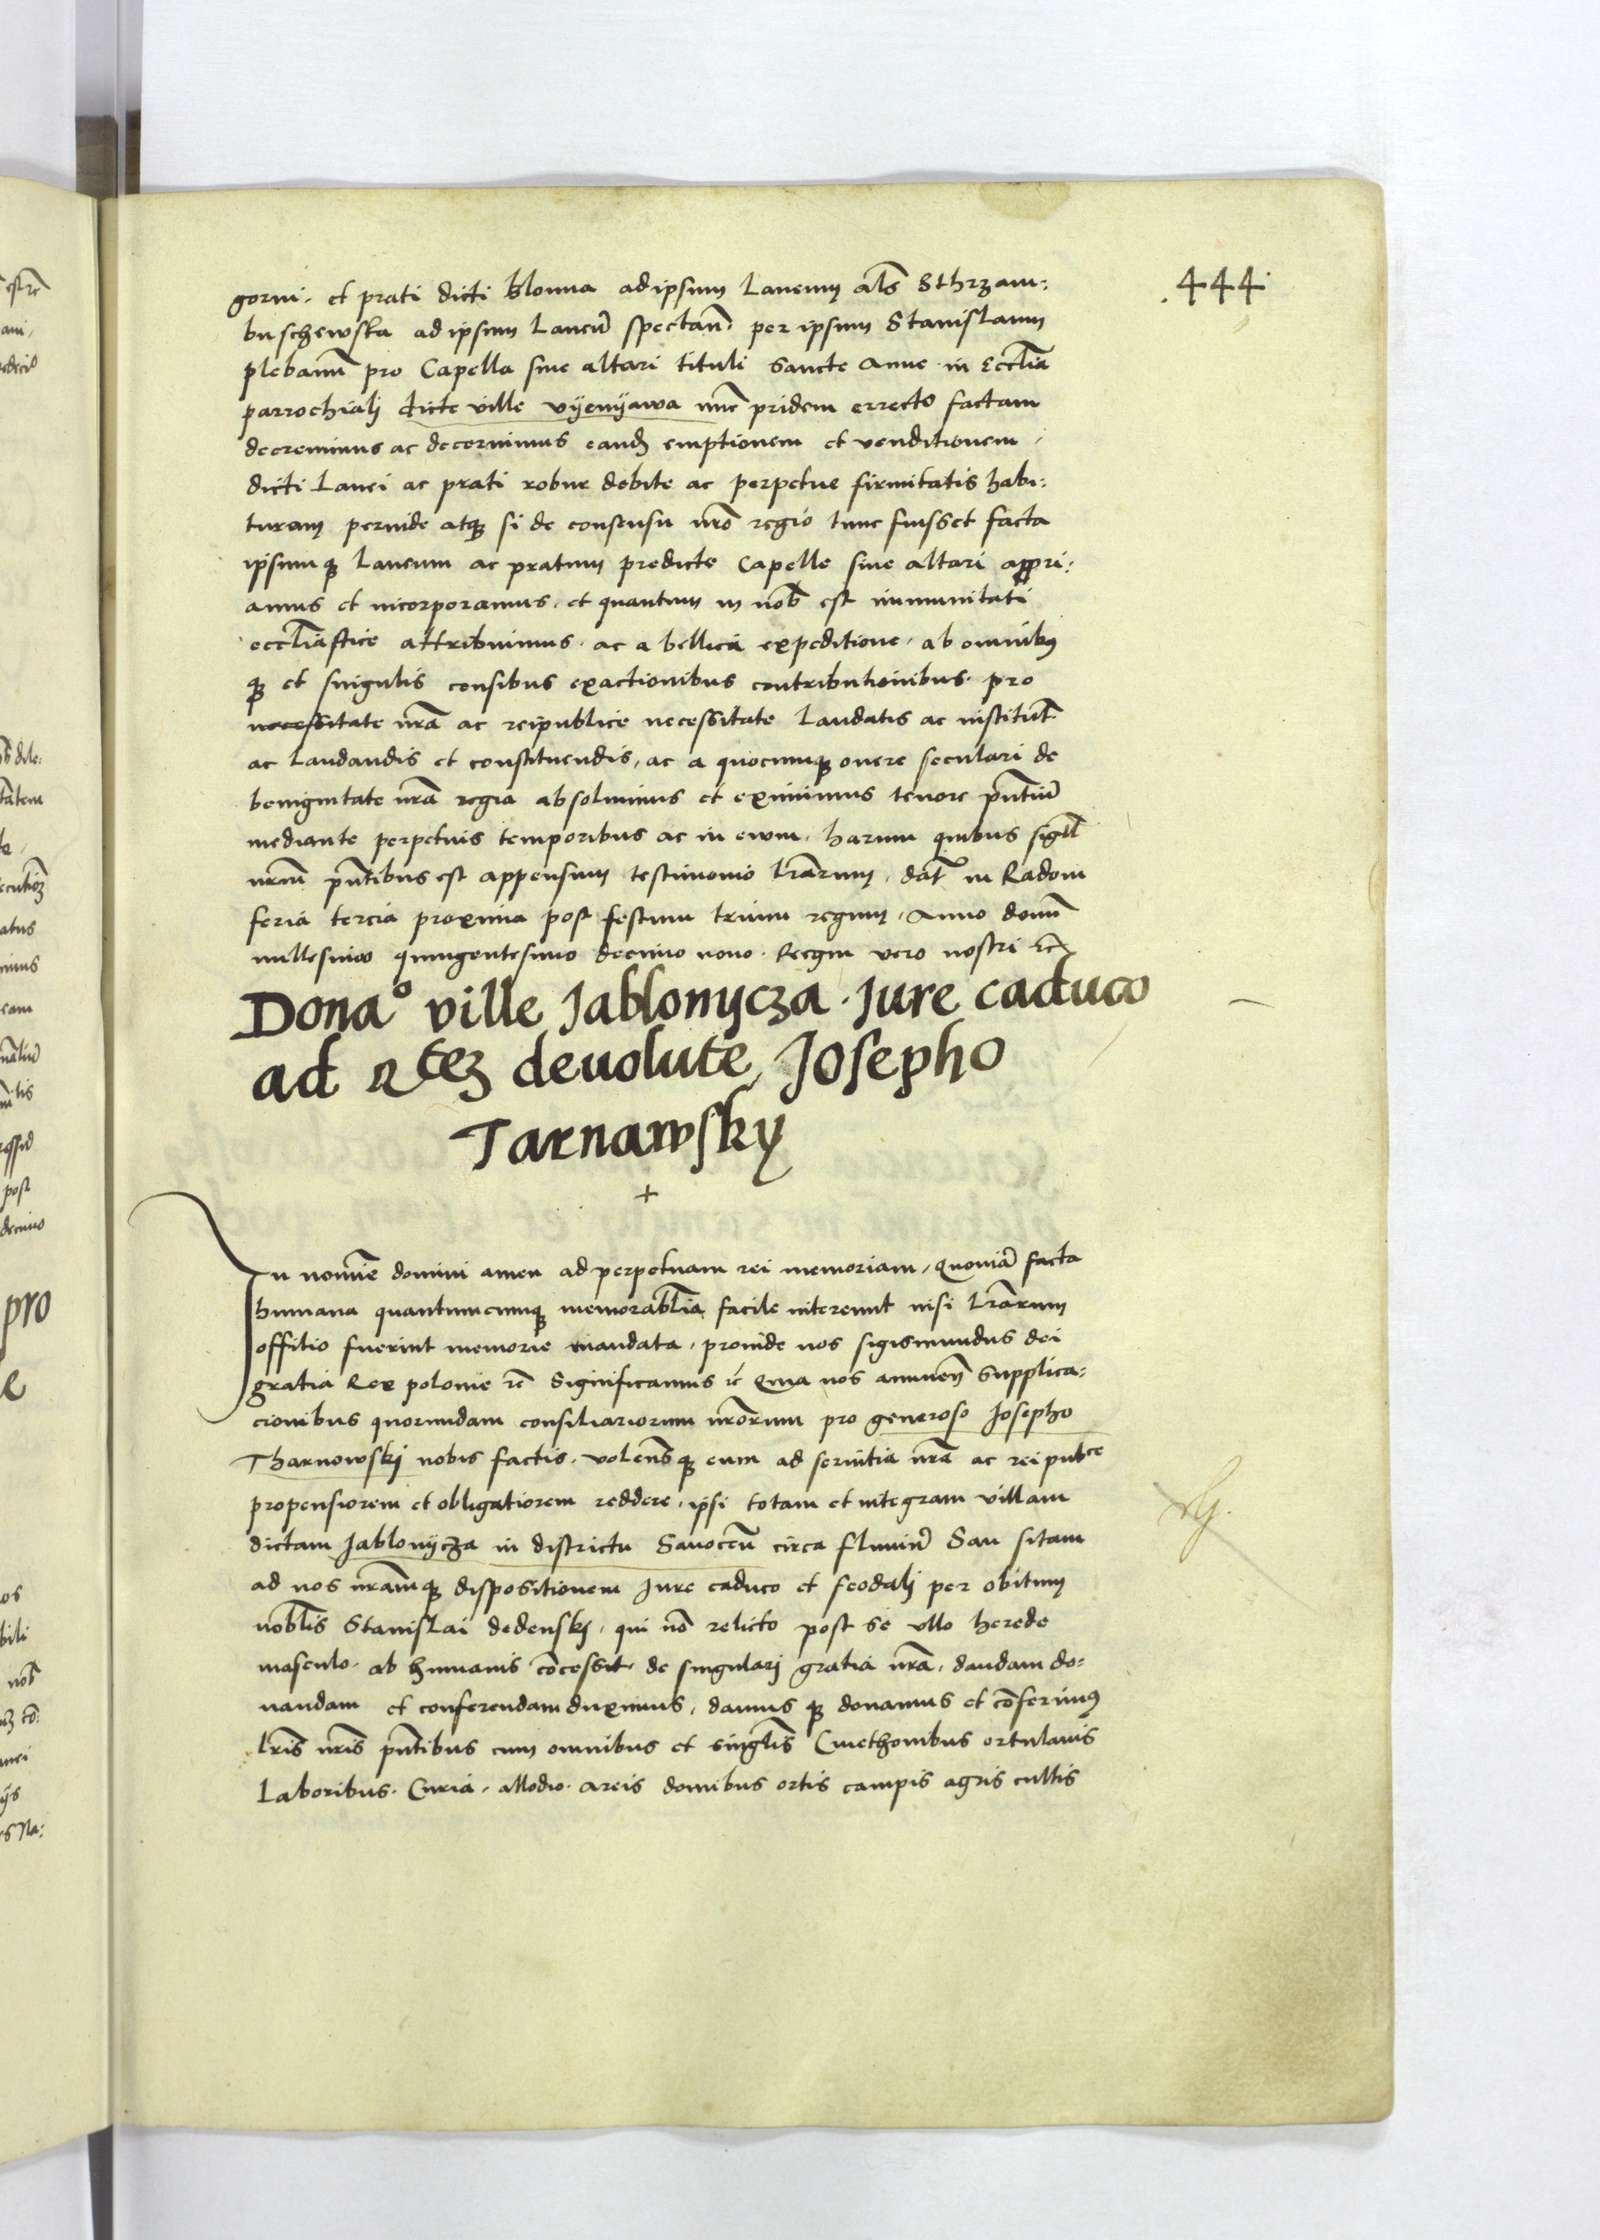 444
gorni. et prati dicti blonna ad ipsum Laneum als Sthrzam:
buschewska ad ipsum Laneū spectan̄. per ipsum Stanislaum
plebanū pro Capella siue altari tituli Sancte Anne in Eccl̄ia
parrochialj dicte ville vÿenÿawa nūc pridem errecto factam
decreuimus ac decernimus eand emptionem et venditionem
dicti Lanei ac prati robur debite ac perpetue firmitatis habi:
turam perinde atq si de consensu nr̄o regio tunc fuisset facta
ipsumq Laneum ac pratum predicte Capelle siue altari appri:
amus et incorporamus. et quantum in nob̄ est immunitati
eccl̄iastice attribuimus. ac a bellica expeditione. ab omnibꝰ
q et singulis censibus exactionibus contributionibus. pro
necessitate nr̄a ac reipublice necessitate Laudatis ac institut̄
ac Laudandis et constituendis, ac a quocumq onere seculari de
benignitate nr̄a regia absoluimus et eximimus tenore pn̄tiū
mediante perpetuis temporibus ac in ewm. harum quibus sigill̄
nr̄um pn̄tibus est appensum testimonio lr̄arum. dat̄ in Radom
feria tercia proxima post festum trium regum. Anno domī
millesimo quingentesimo decimo nono. Regni vero nostri rc̄
Donaº ville Jablonycza. Jure caduco
ad Rtēz deuolute, Josepho
Tarnawsky
In nomīe domini amen ad perpetuam rei memoriam, Quoniā facta
humana quantumcumq memorabl̄ia facile intereunt nisi lr̄arum
offitio fuerint memorie mandata. proinde nos sigismundus dei
gratia Rex polonie rc̄ Significamus rc̄ Quia nos annuen̄ supplica:
cionibus quorundam consiliariorum nr̄orum pro generoso Josepho
Tharnowskj nobis factis. volen̄sq eum ad seruitia nr̄a ac rei pub^ce
propensiorem et obligatiorem reddere. ipsi totam et integram villam
dictam Jablonÿcza in districtu Sanoceñ circa fluuiū San sitam
ad nos nr̄amq dispositionem Jure caduco et feodalj per obitum
nobl̄is Stanislai dedenskj. qui nō relicto post se vllo herede
masculo. ab humanis cōcessit. de singularj gratia nr̄a. dandam do:
nandam et conferendam duximus, damus q donamus et cōferimꝰ
lr̄is nr̄is pn̄tibus cum omnibus et singl̄is Cmethonibus ortulanis
Laboribus. Curia. allodio. areis domibus ortis campis agris cultis